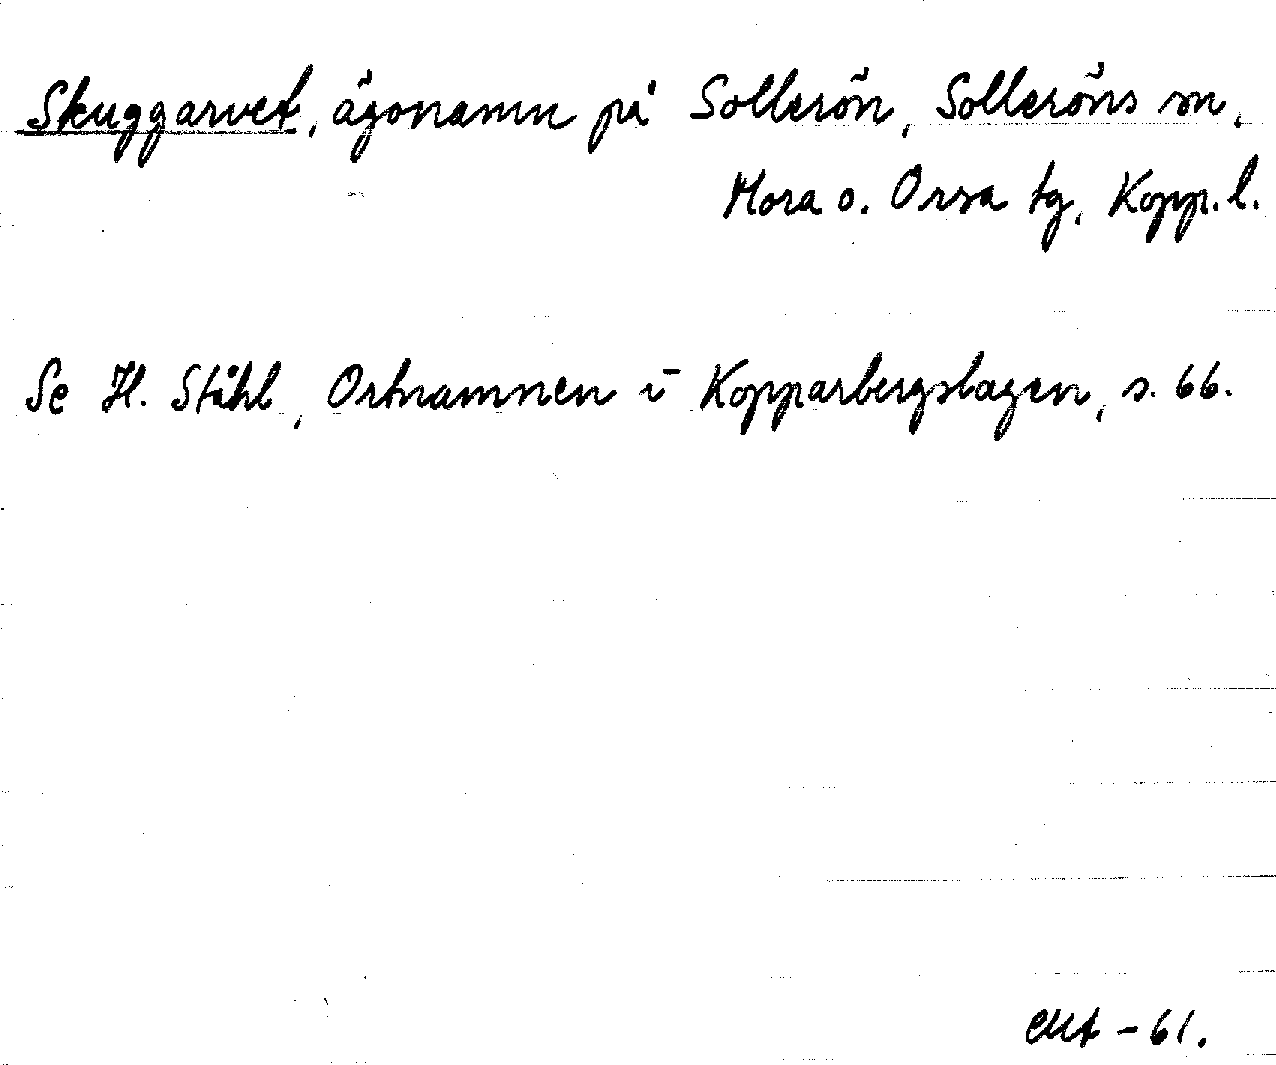 Skuggarvet, ägonamn på Sollerön, Solleröns sn,
Mora o. Orsa tg, Kopp. l.
Se H. Ståhl, Ortnamnen i Kopparbergslagen, s. 66.
-61.